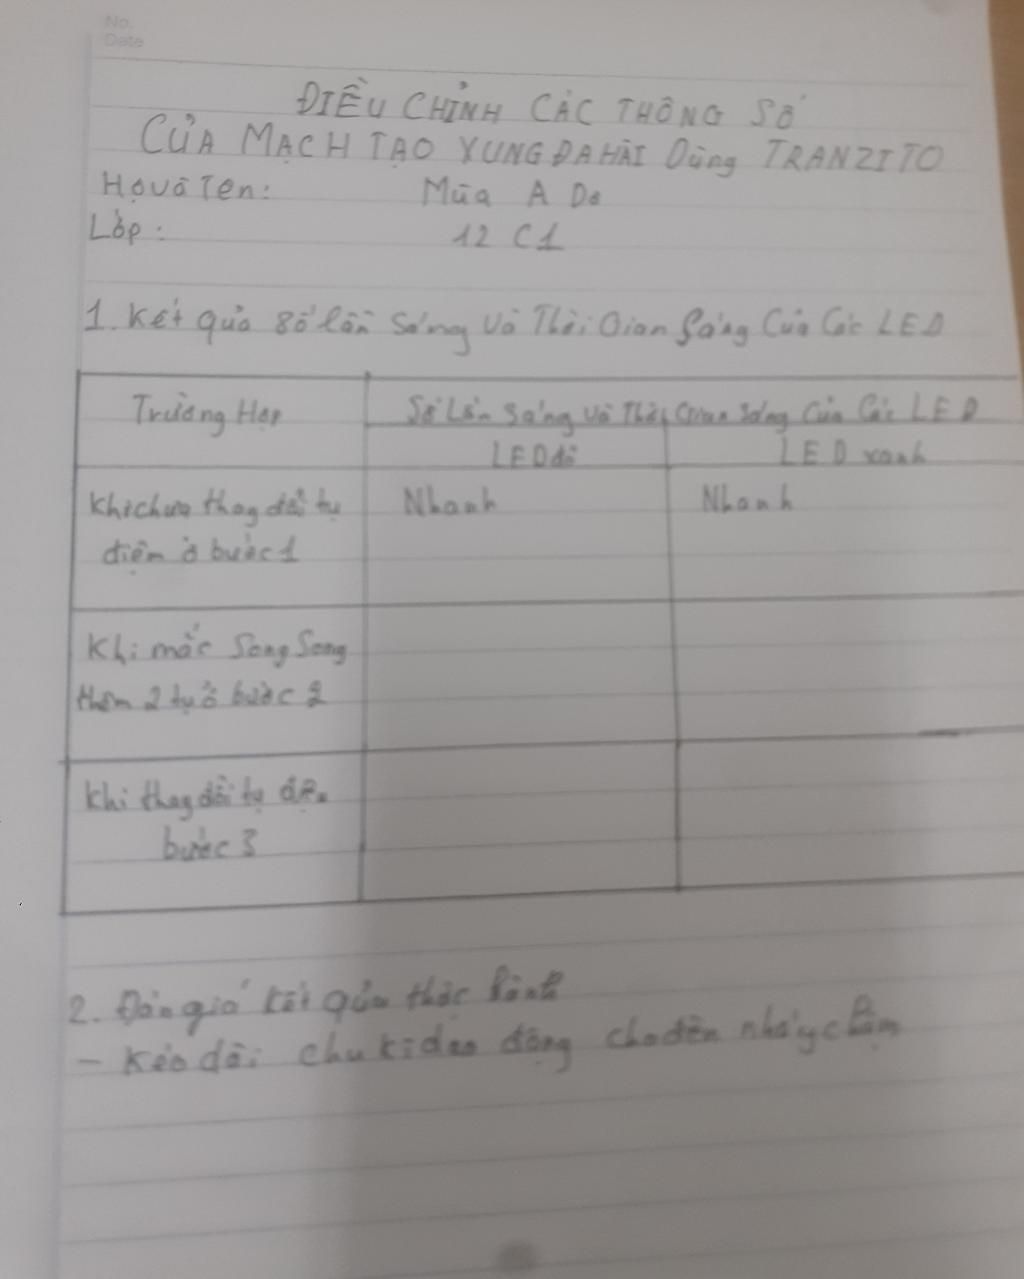 No.
Date
ĐIỀU CHỈNH CÁC THÔNG SỐ
CỦA MẠCH TẠO XUNG ĐA HÀI Dùng TRANZITO
Họ và Tên: Mùa A Do
Lớp: 12 C1
1. Kết quả số lần sáng và Thời Gian Sáng Của Các LED
Trường Hợp
Số Lần Sáng và Thời Gian Sáng Của Các LED
LED đỏ
LED xanh
Khi chưa thay đổi tụ
điện ở bước 1
Nhanh
Nhanh
Khi mắc Song Song
thêm 2 tụ ở bước 2
Khi thay đổi tụ điện
bước 3
2. Đán giá kết qủa thực hành
- Kéo dài chu kì dao động cho đèn nháy chậm